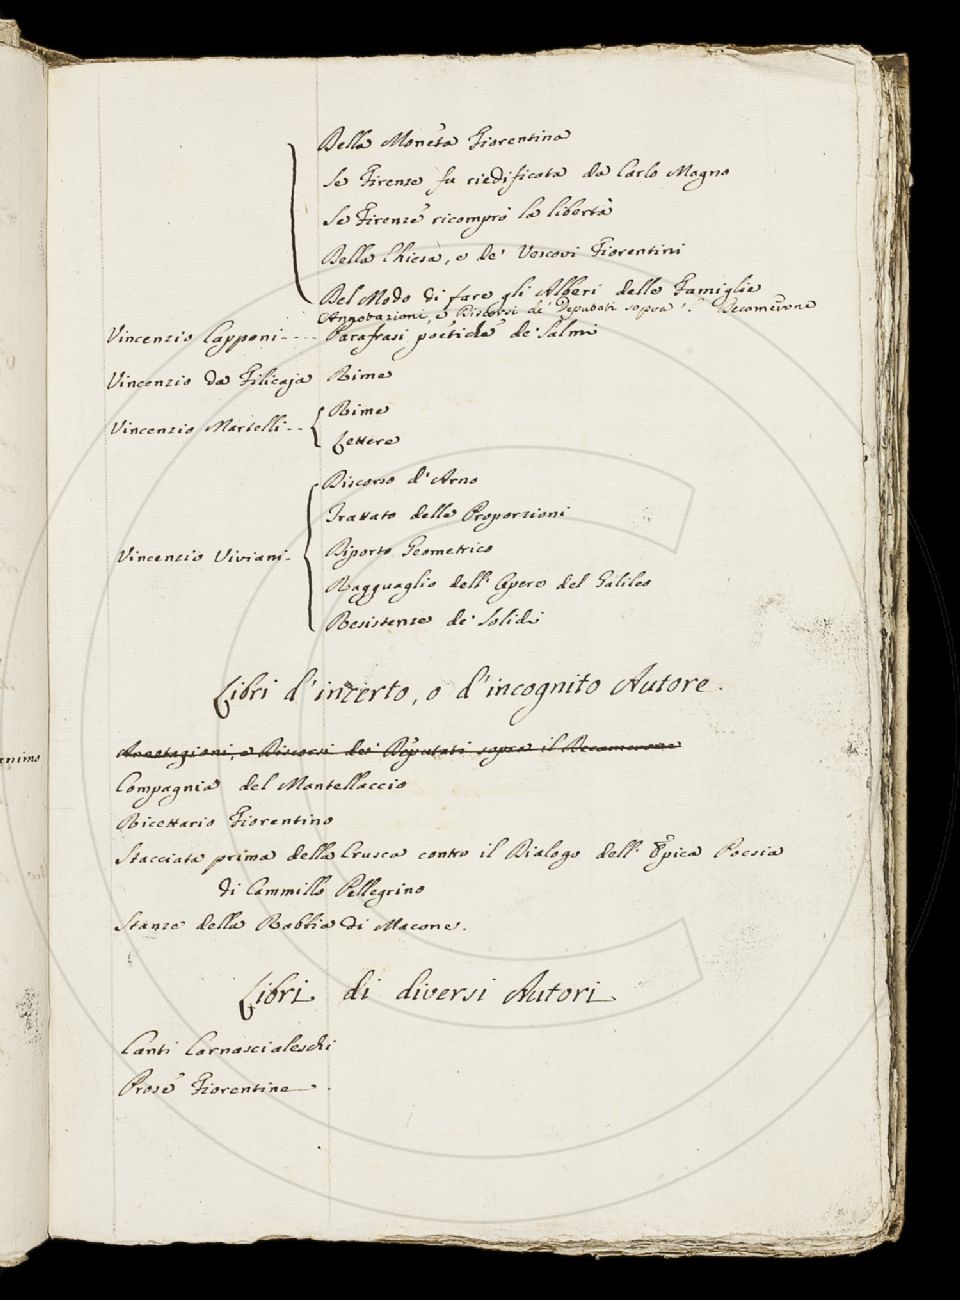 Della Moneta Fiorentina
Se Firenze fu riedificata da Carlo Magno
Se Firenze ricomprò la libertà
Della Chiesa, e de' Vescovi Fiorentini
Del Modo di fare gli Alberi delle Famiglie
Annotazioni, e Discorsi de' Deputati sopra il Decamerone
Vincenzio Capponi---- Parafrasi poetiche de' Salmi
Vincenzio da Filicaja Rime
Vincenzio Martelli-- Rime
Lettere
Discorso d'Arno
Trattato delle Proporzioni
Vincenzio Viviani- Riporto Geometrico
Ragguaglio dell'Opere del Galileo
Resistenze de' Solidi
Libri d'incerto, o d'incognito Autore.
Annotazioni, e Discorsi dei Deputati sopra il Decamerone
Compagnia del Mantellaccio
Ricettario Fiorentino
Stacciata prima della Crusca contro il Dialogo dell'Epica Poesia
di Cammillo Pellegrino
Stanze della Rabbia di Macone.
Libri di diversi Autori
Canti Carnascialeschi
Prose Fiorentine